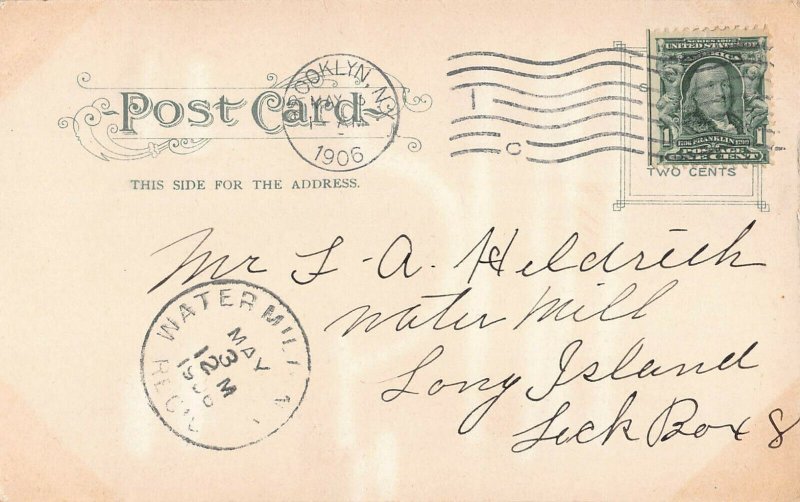 Post Card
THIS SIDE FOR THE ADDRESS.
BROOKLYN, N.Y.
MAY
1906
SERIES 1902
UNITED STATES OF
AMERICA
1 1
1706 FRANKLIN 1790
POSTAGE
ONE CENT
TWO CENTS
Mr L. A. Heldreth
Water Mill
Long Island
Lock Box 8
WATER MILL N.
MAY
3
12 M
1906
REC'D